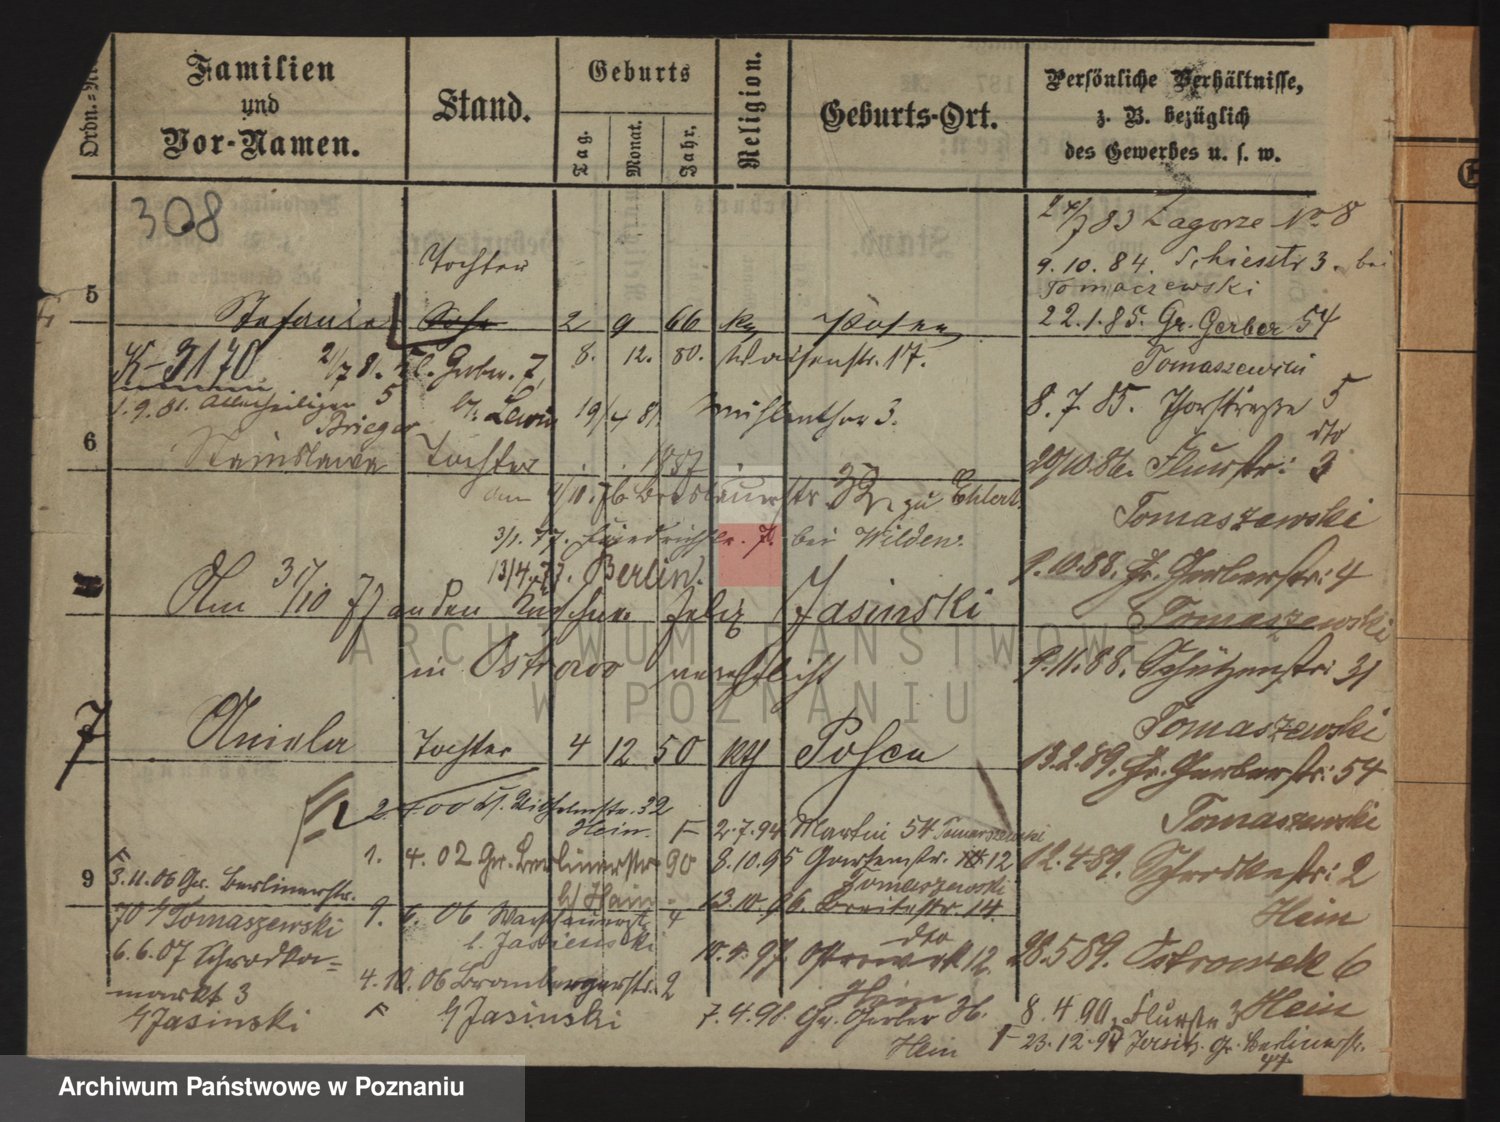 Ordn.=Nr.
Familien
und
Vor-Namen.
Stand.
Geburts
Tag.
Monat.
Jahr.
Religion.
Geburts-Ort.
Persönliche Verhältnisse,
z. B. bezüglich
des Gewerbes u. s. w.
308
5
Tochter
Stefania
2 9 66 Posen
2 4/7 83 Zagorze No 8
9. 10. 84. Schiesstr 3. bei
Tomaczewski
22.1.85. Gr. Gerber 54
Tomaszewski
K-3170
8. 12. 80. Waisenstr. 17.
1.9.81. Allerheiligen 5
Brieger
Lewin 19/4 81. Mühlenthor 3.
8. 7. 85. Thorstraße 5
dto
6
Stanislawa Tochter 1857
29/10.86. Flurstr: 3
Tomaszewski
den Breslauerstr 32 zu Ehlert.
3/1. 77. Friedrichstr. 7. bei Wilden.
13/4. 77. Berlin.
9.10.88. Gr. Gerberstr: 4
Tomaszewski
Am 31/10 77 an den Kürschner Felix Jasinski
in Ostrowo verehelicht
9.11.88. Schützenstr: 31
Tomaszewski
7
Aniela Tochter 4 12 50 kth Posen
13.2.89. Gr. Gerberstr: 54
Tomaszewski
Wilhelmstr. 32
Hein
2.7.94 Martin 54 Tomaszewski
1. 4. 02 Gr. Berlinerstr 90
b/ Hain
8.10.95 Gartenstr. 12
Tomaszewski
12.4.89. Schrodkastr: 2
Hein
9
3.11.06 Gr. Berlinerstr.
70 b/ Tomaszewski
13.10.96. Breitestr. 14.
dto
9. 6. 06 Warschauerstr 4
b. Jasienski
10.9.97. Ostrowek 12
Hein
28.5.89. Ostrowek 6
Hein
6.6.07 Schrodka=
markt 3
b/ Jasinski
4.10.06 Brombergerstr. 2
b/ Jasinski
7.4.98. Gr. Gerber
Hein
8.4.90. Flurstr 3
23.12.97 Jersitz. Gr. Berlinerstr.
47
ARCHIWUM PAŃSTWOWE
W POZNANIU
Archiwum Państwowe w Poznaniu